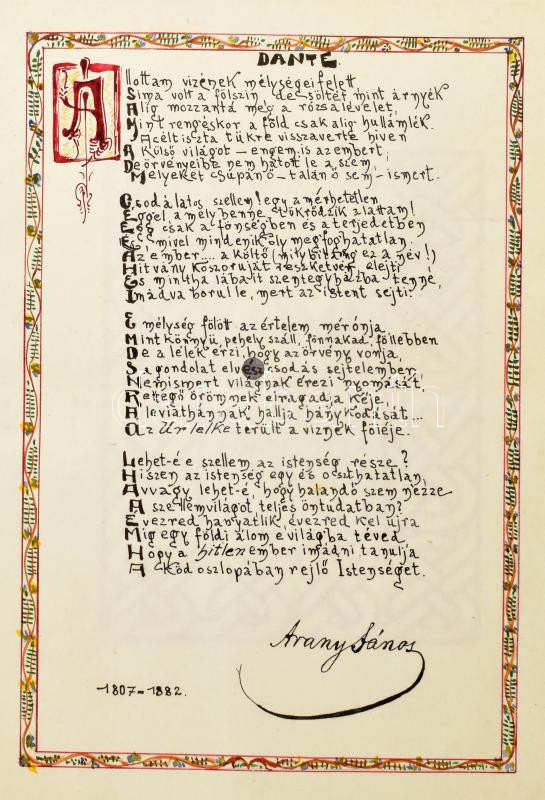 DANTE
Állottam vizének mélységei felett
Sima volt a fölszin de sötét mint árnyék
Alig mozzantá meg a rózsalevelet,
Mint rengéskor a föld csak alig hullámlék.
Acéltiszta tükre visszaverte hiven
A külső világot – engem is az embert,
De örvényeibe nem hatott le a szem,
Melyeket csupán ő – talán ő sem – ismert.
Csodálatos szellem! egy a mérhetetlen
Éggel, a mély benne tükrödzik alattam!
Egy csak a fönségben és a terjedetben
És, mivel mindenik oly megfoghatatlan.
Az ember.... a költő (mily bitang ez a név!)
Hitvány koszoruját reszketvén elejti
És mintha lábait szentegyházba tenné,
Imádva borul le, mert az istent sejti.
E mélység fölött az értelem mérónja,
Mint könnyü, pehely száll, fönnakad, föllebben
De a lélek érzi, hogy az örvény vonja,
S a gondolat elvész csodás sejtelemben.
Nemismert világnak érezi nyomását,
Rettegő örömnek elragadja kéje,
A leviáthánnak hallja hánykodását...
Az Úr lelke terült a viznek föléje.
Lehet-é e szellem az istenség része?
Hiszen az istenség egy és oszthatatlan,
Avvagy lehet-é, hogy halandó szem nézze
A szellemvilágot teljes öntudatban?
Évezred hanyatlik, évezred kel újra
Mig egy földi álom e világba téved,
Hogy a hitlen ember imádni tanulja
A köd oszlopában rejlő Istenséget.
Arany János
1807-1882.